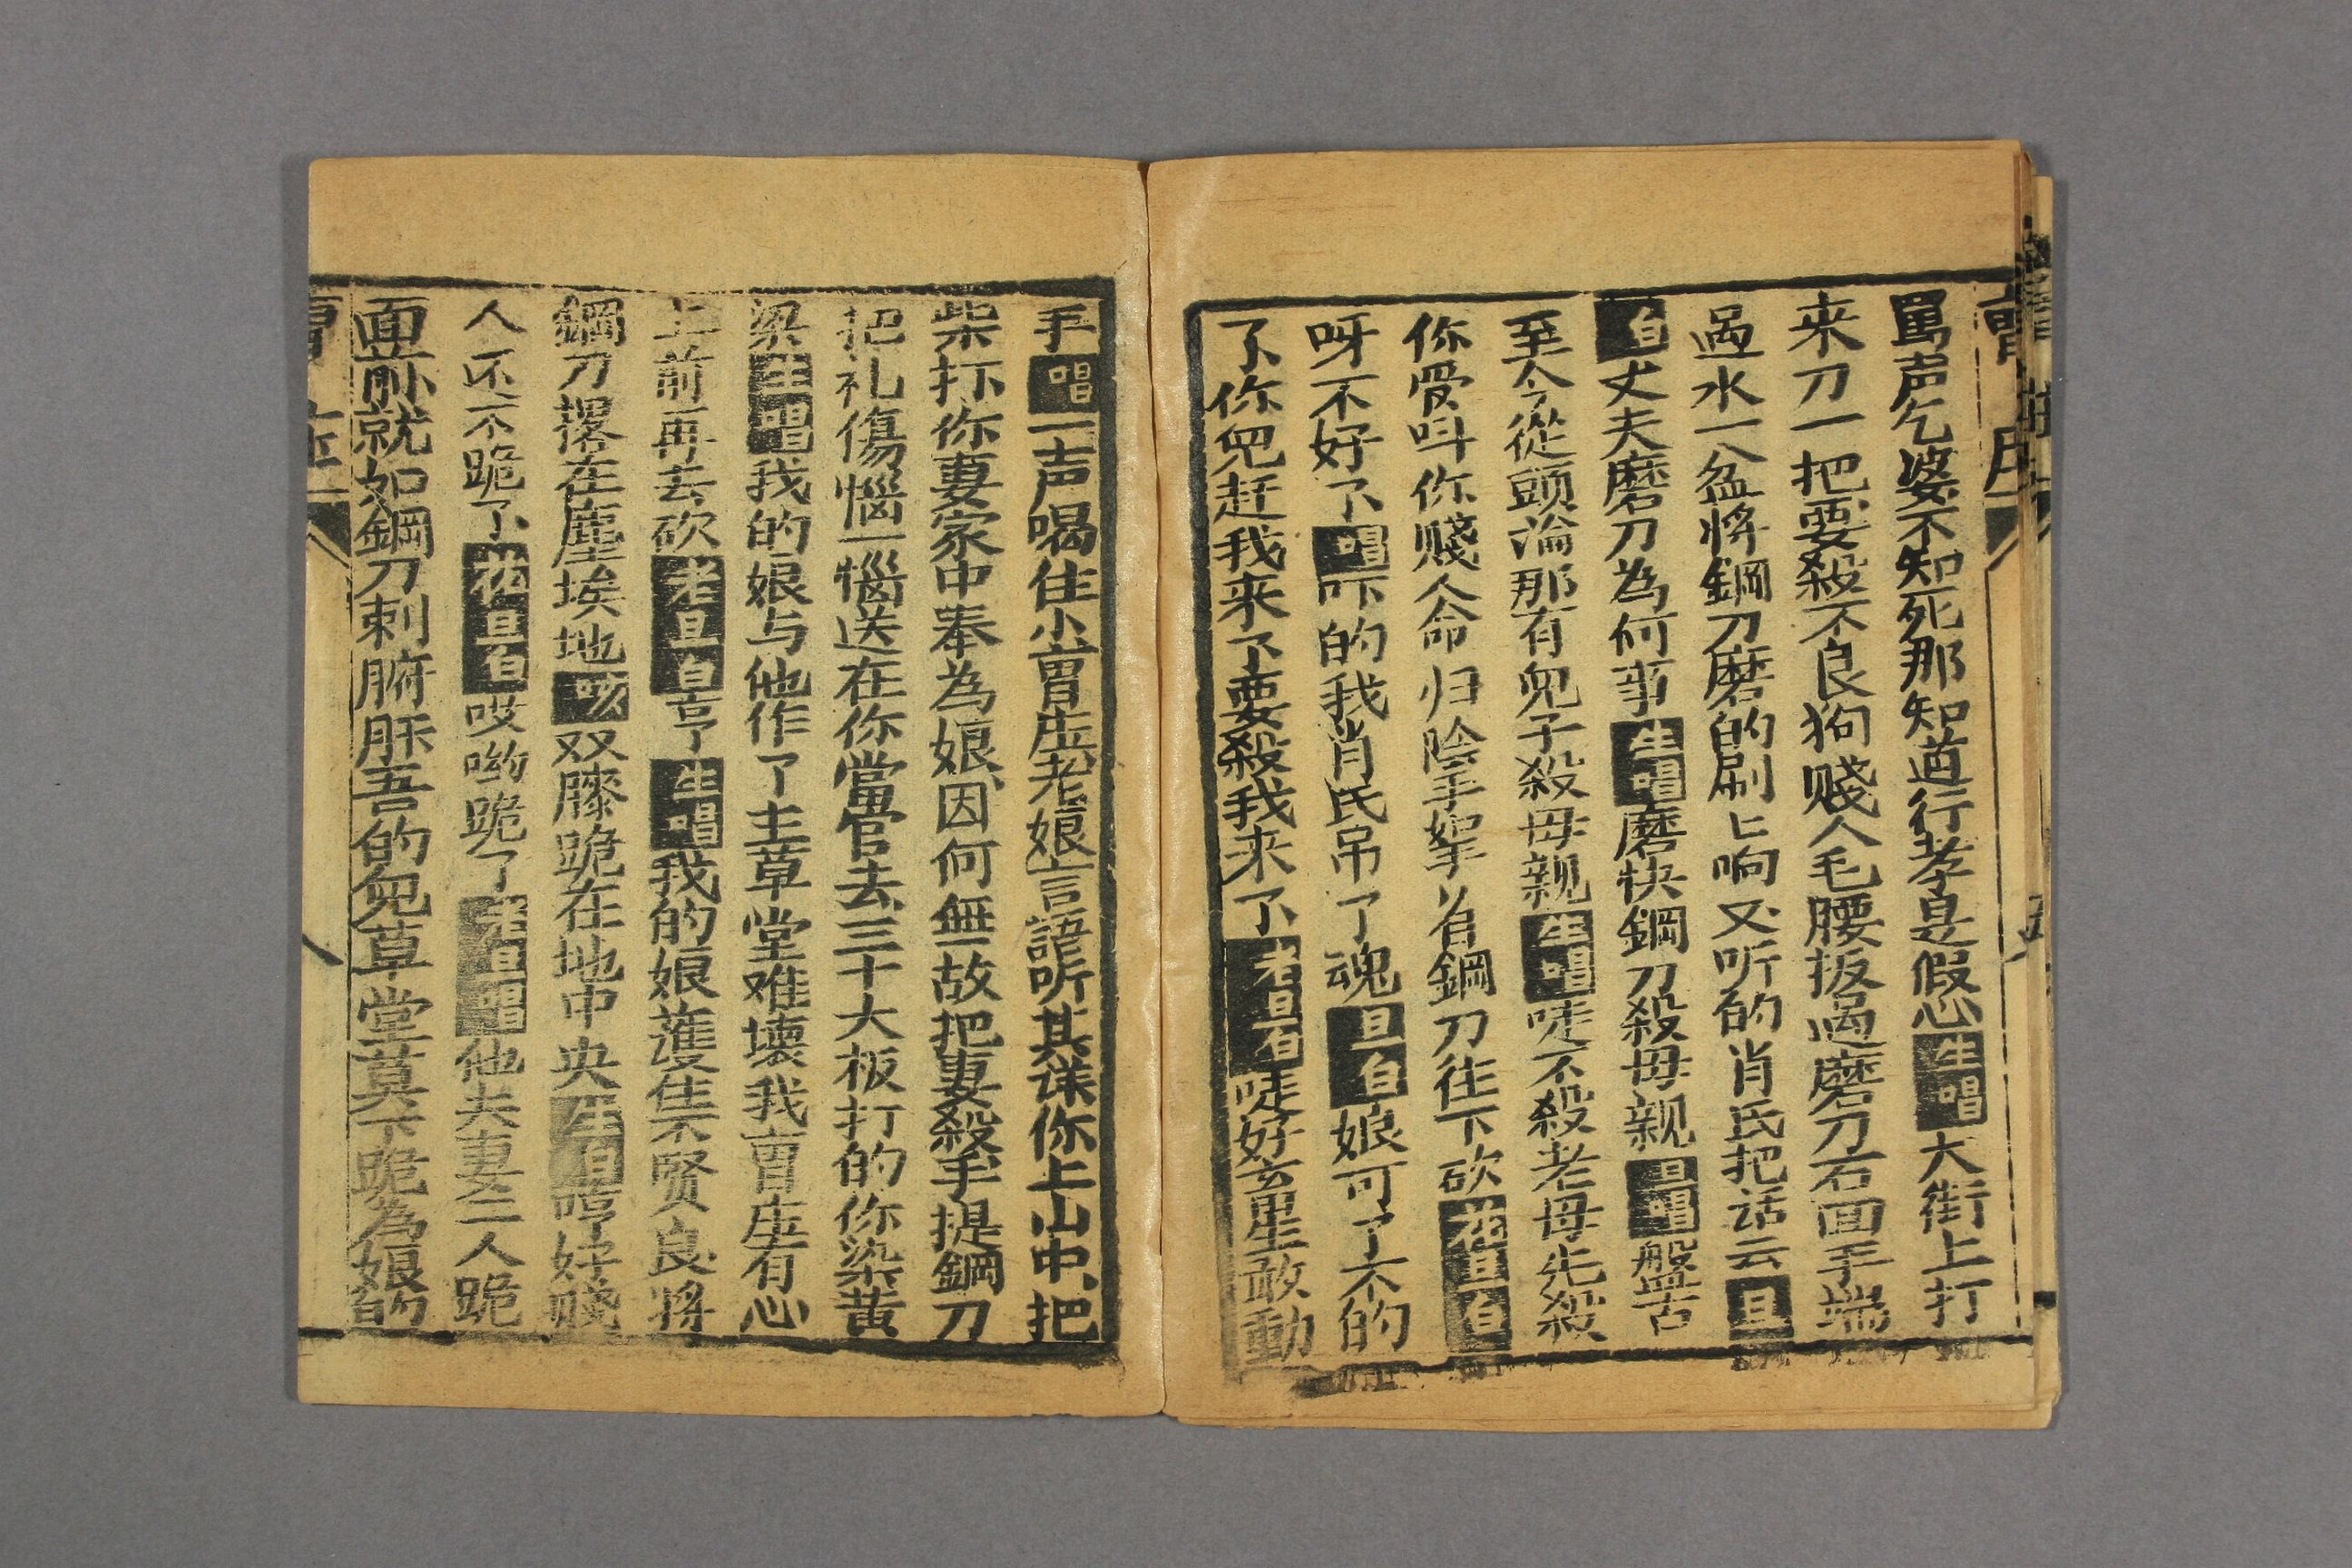 罵声乞婆不知死那知道行孝是假心生唱大街上打
来刀一把要殺不良狗賤人毛腰扳過磨刀石面手端
過水一盆将鋼刀磨的刷〻响又听的肖氏把话云旦
白丈夫磨刀為何事生唱磨快鋼刀殺母親旦唱盤古
至今從頭淪那有兒子殺母親生唱哇不殺老母先殺
你受呌你賤人命归陰手挐着鋼刀往下砍花旦白
呀不好了唱吓的我肖氏吊了魂旦白娘可了不的
了你兒赶我来了要殺我来了老旦白哇好玄畢生敢動
手唱一声喝住小曺庄老娘言諺听其详你上山中把
柴打你妻家中奉為娘因何無故把妻殺手提鋼刀
把礼傷惱一惱送在你當官去三十大板打的你染黄
梁生唱我的娘与他作了主草堂难壊我曺庄有心
上前再去砍老旦白亨生唱我的娘護隹不贤良将
鋼刀撂在塵埃地唱双膝跪在地中央生白哼好賤
人还不跪了花旦白哎喲跪了老旦唱他夫妻二人跪
面前就如鋼刀刺腑肝吾的兒草堂莫下跪為娘的